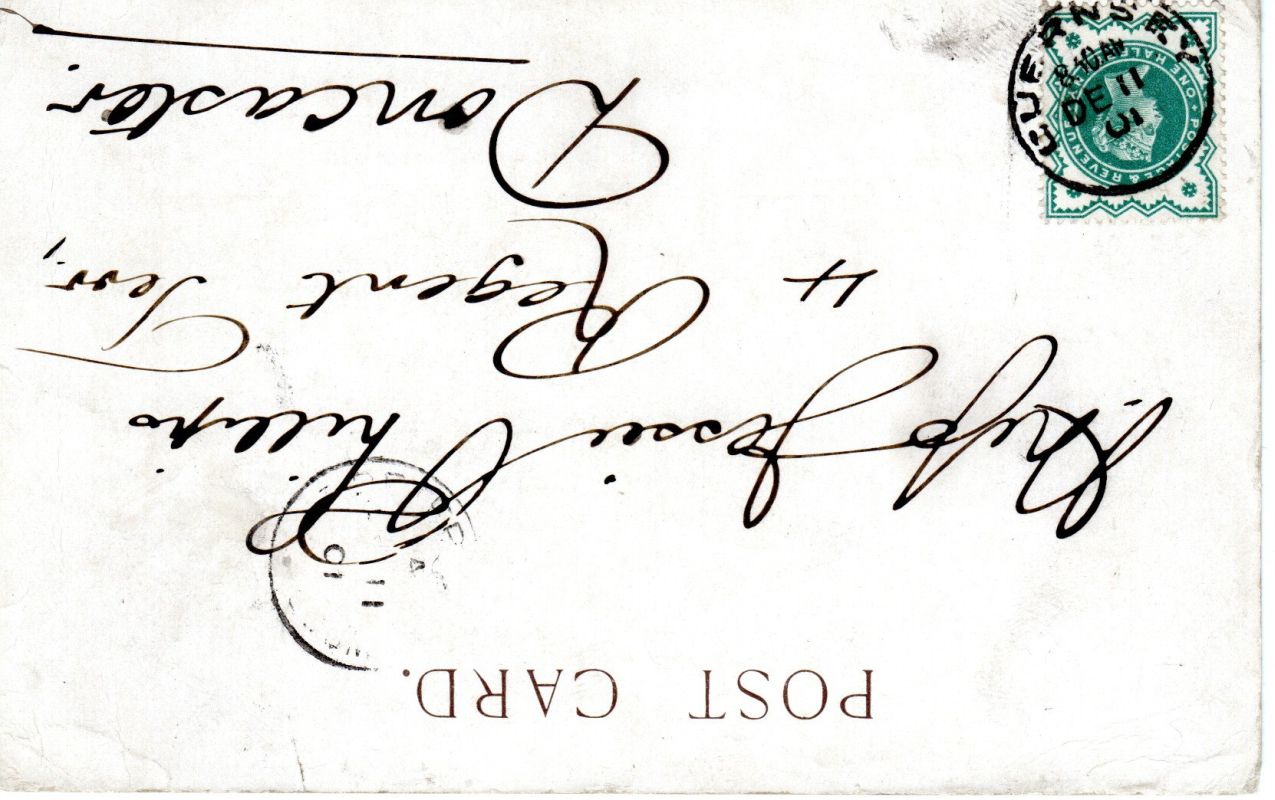 POST CARD.
Miss Jessie Phillips
4 Regent Terr,
Doncaster.
GUERNSEY
8.10AM
DE 11
01
POSTAGE & REVENUE
ONE HALF